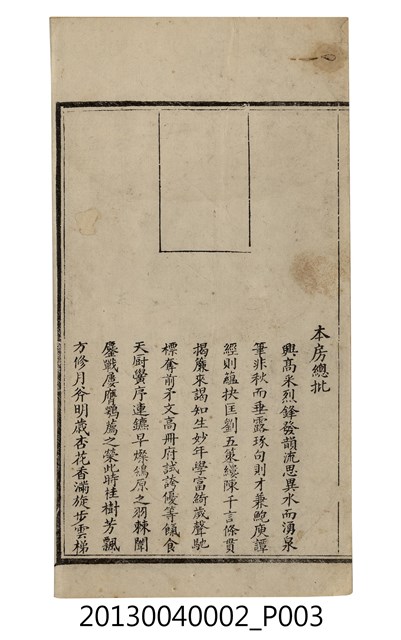 本房總批
興高采烈鋒發韻流思異水而湧泉
筆非秋而垂露琢句則才兼鮑庾譚
經則蘊抉匡劉五策縷陳千言條貫
揭簾來謁知生妙年學富綺歲聲馳
標奪前矛文高冊府試誇優等餼食
天廚黌序連鑣早燦鴒原之羽棘闈
鏖戰屢膺鶚薦之榮此時桂樹芳飄
方修月斧明歲杏花香滿旋步雲梯
20130040002_P003